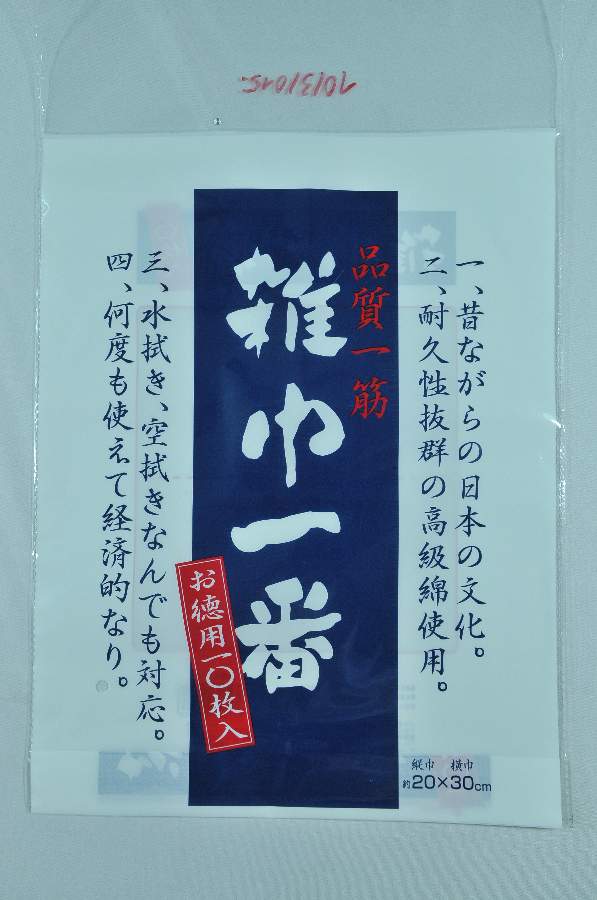 10/3/1015.
一、昔ながらの日本の文化。
二、耐久性抜群の高級綿使用。
品質一筋
雑巾一番
お徳用一〇枚入
三、水拭き、空拭きなんでも対応。
四、何度も使えて経済的なり。
縦巾 横巾
約20×30cm